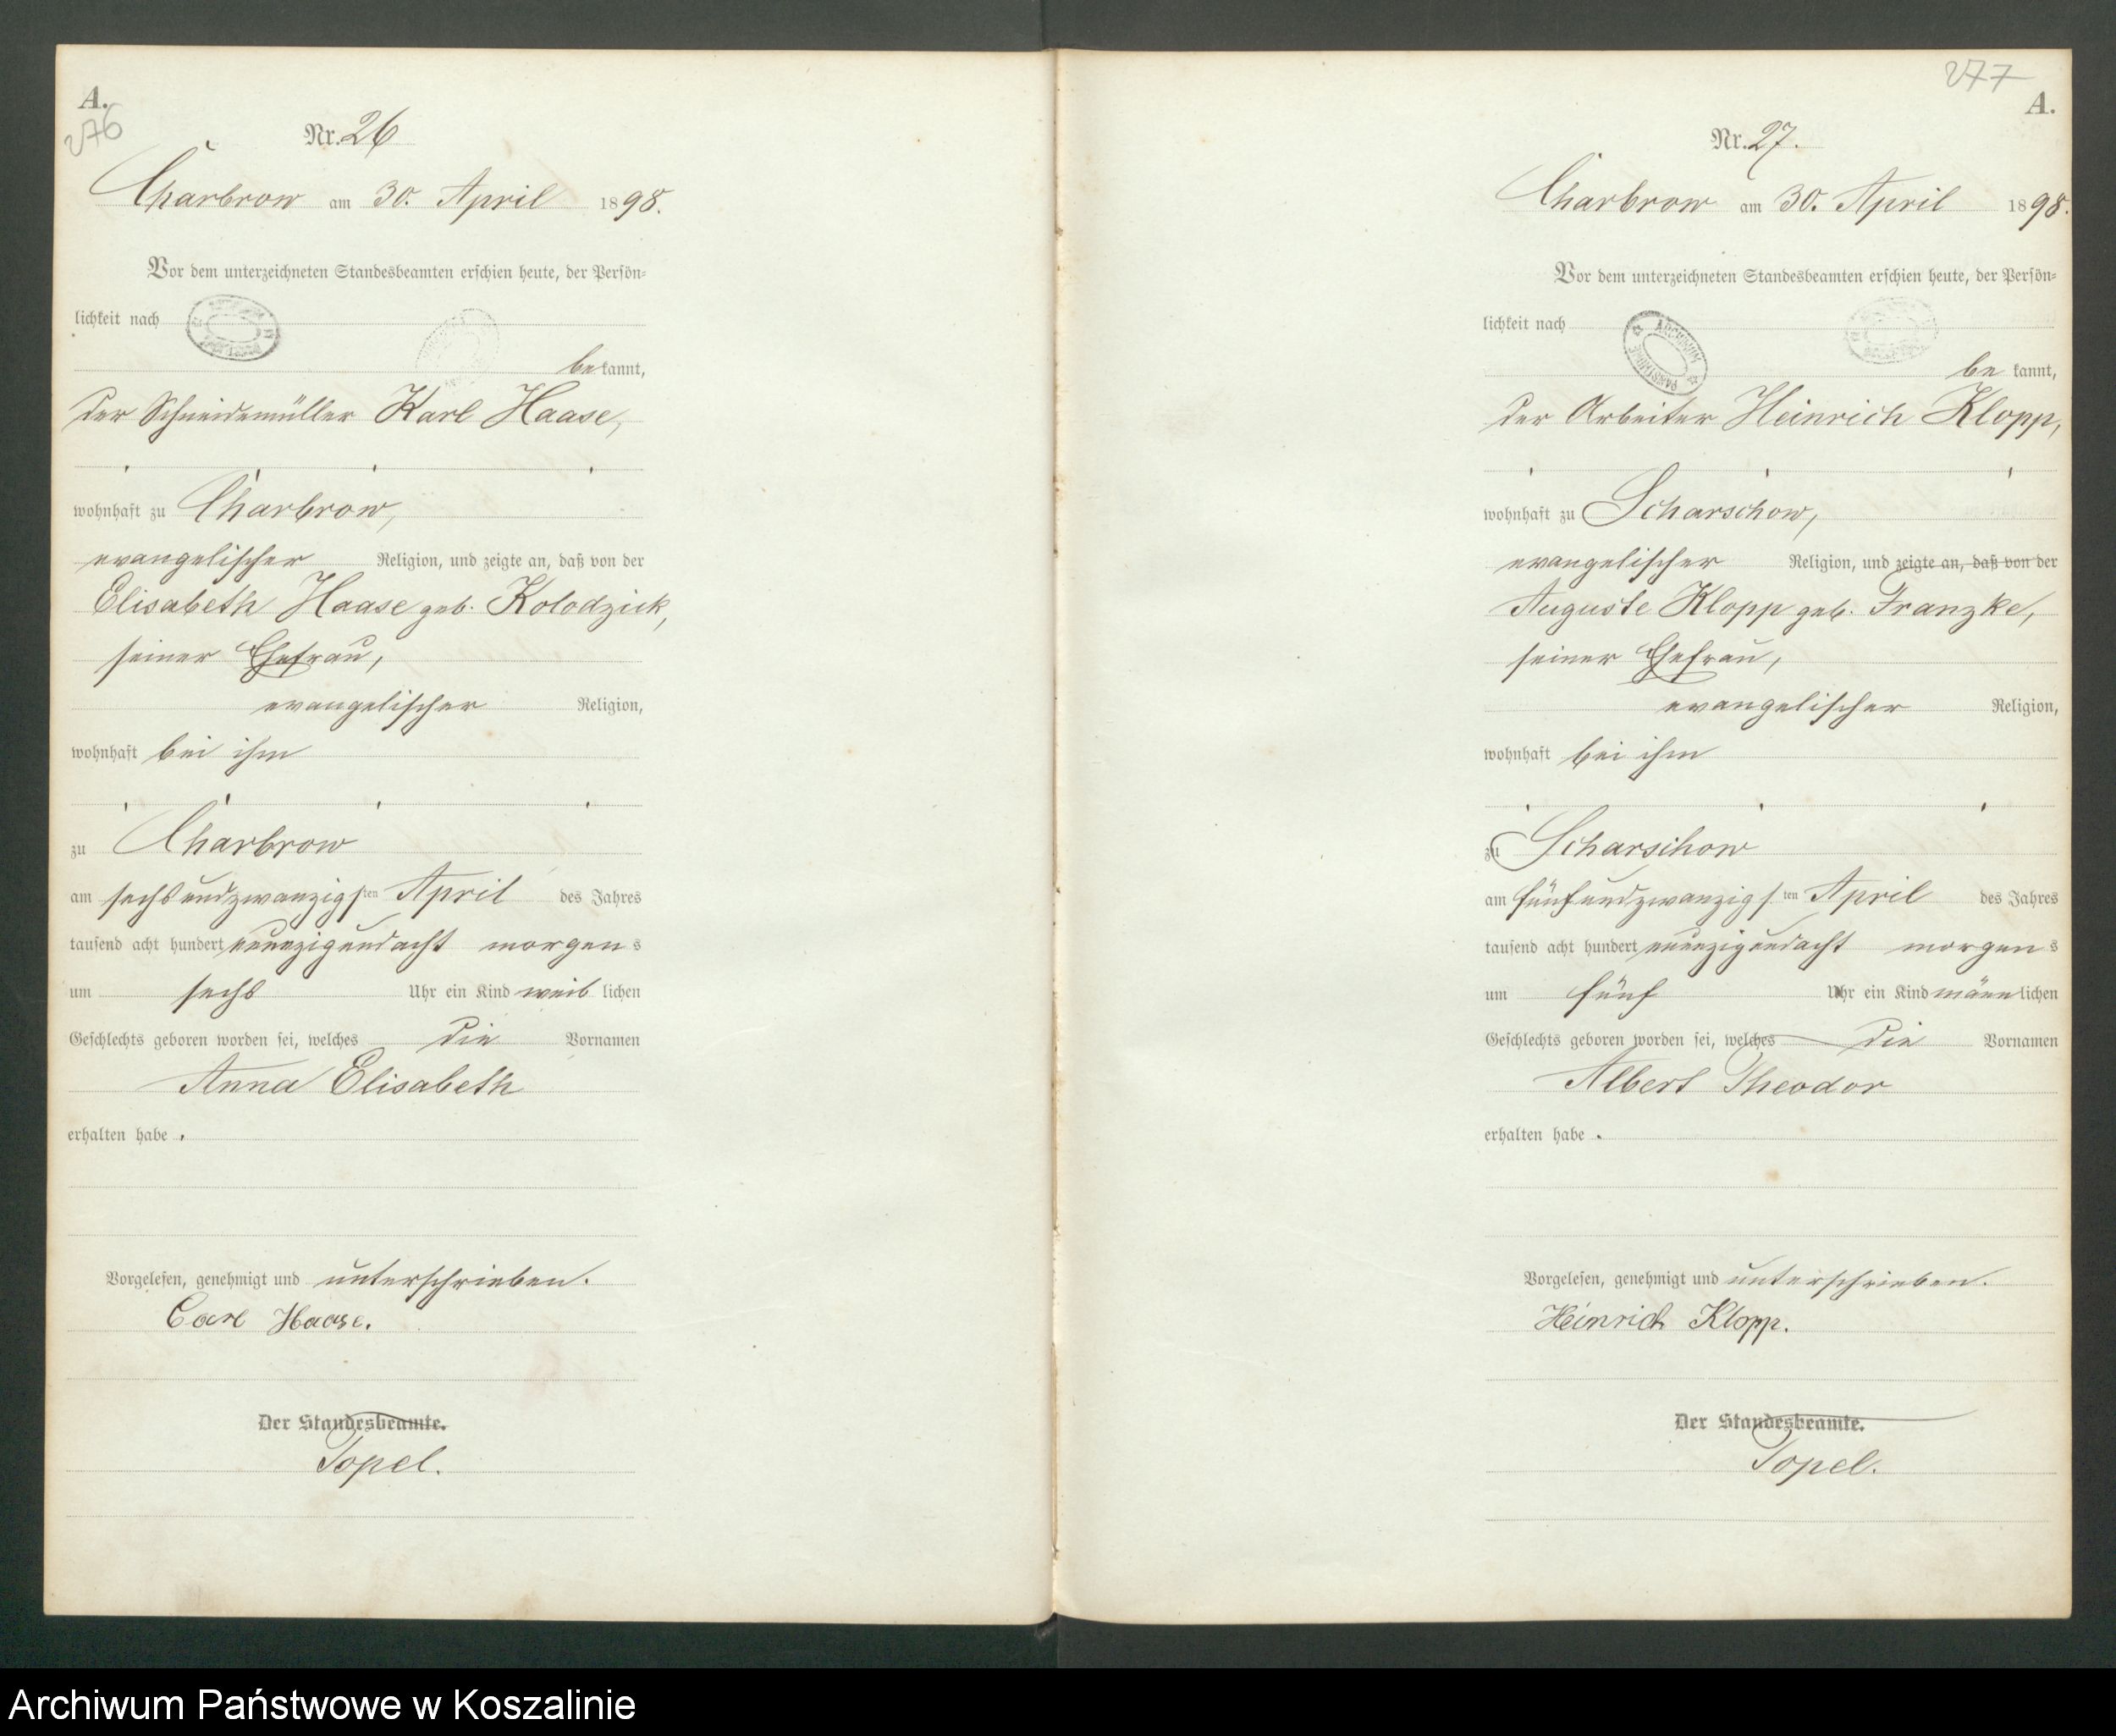 A.
276
Nr. 26
Charbrow am 30. April 1898.
Vor dem unterzeichneten Standesbeamten erschien heute, der Persön-
lichkeit nach
bekannt,
der Schneidemüller Karl Haase,
wohnhaft zu Charbrow,
evangelischer Religion, und zeigte an, daß von der
Elisabeth Haase geb. Kolodzick,
seiner Ehefrau,
evangelischer Religion,
wohnhaft bei ihm
zu Charbrow
am sechsundzwanzigsten April des Jahres
tausend acht hundert neunzigundacht morgens
um sechs Uhr ein Kind weiblichen
Geschlechts geboren worden sei, welches die Vornamen
Anna Elisabeth
erhalten habe.
Vorgelesen, genehmigt und unterschrieben.
Carl Haase.
Der Standesbeamte.
Topel.
277
A.
Nr. 27.
Charbrow am 30. April 1898.
Vor dem unterzeichneten Standesbeamten erschien heute, der Persön-
lichkeit nach
ARCHIWUM PAŃSTWOWE
bekannt,
der Arbeiter Heinrich Klopp,
wohnhaft zu Scharschow,
evangelischer Religion, und zeigte an, daß von der
Auguste Klopp geb. Franzke,
seiner Ehefrau,
evangelischer Religion,
wohnhaft bei ihm
zu Scharschow
am fünfundzwanzigsten April des Jahres
tausend acht hundert neunzigundacht morgens
um fünf Uhr ein Kind männlichen
Geschlechts geboren worden sei, welches die Vornamen
Albert Theodor
erhalten habe.
Vorgelesen, genehmigt und unterschrieben.
Heinrich Klopp.
Der Standesbeamte.
Topel.
Archiwum Państwowe w Koszalinie